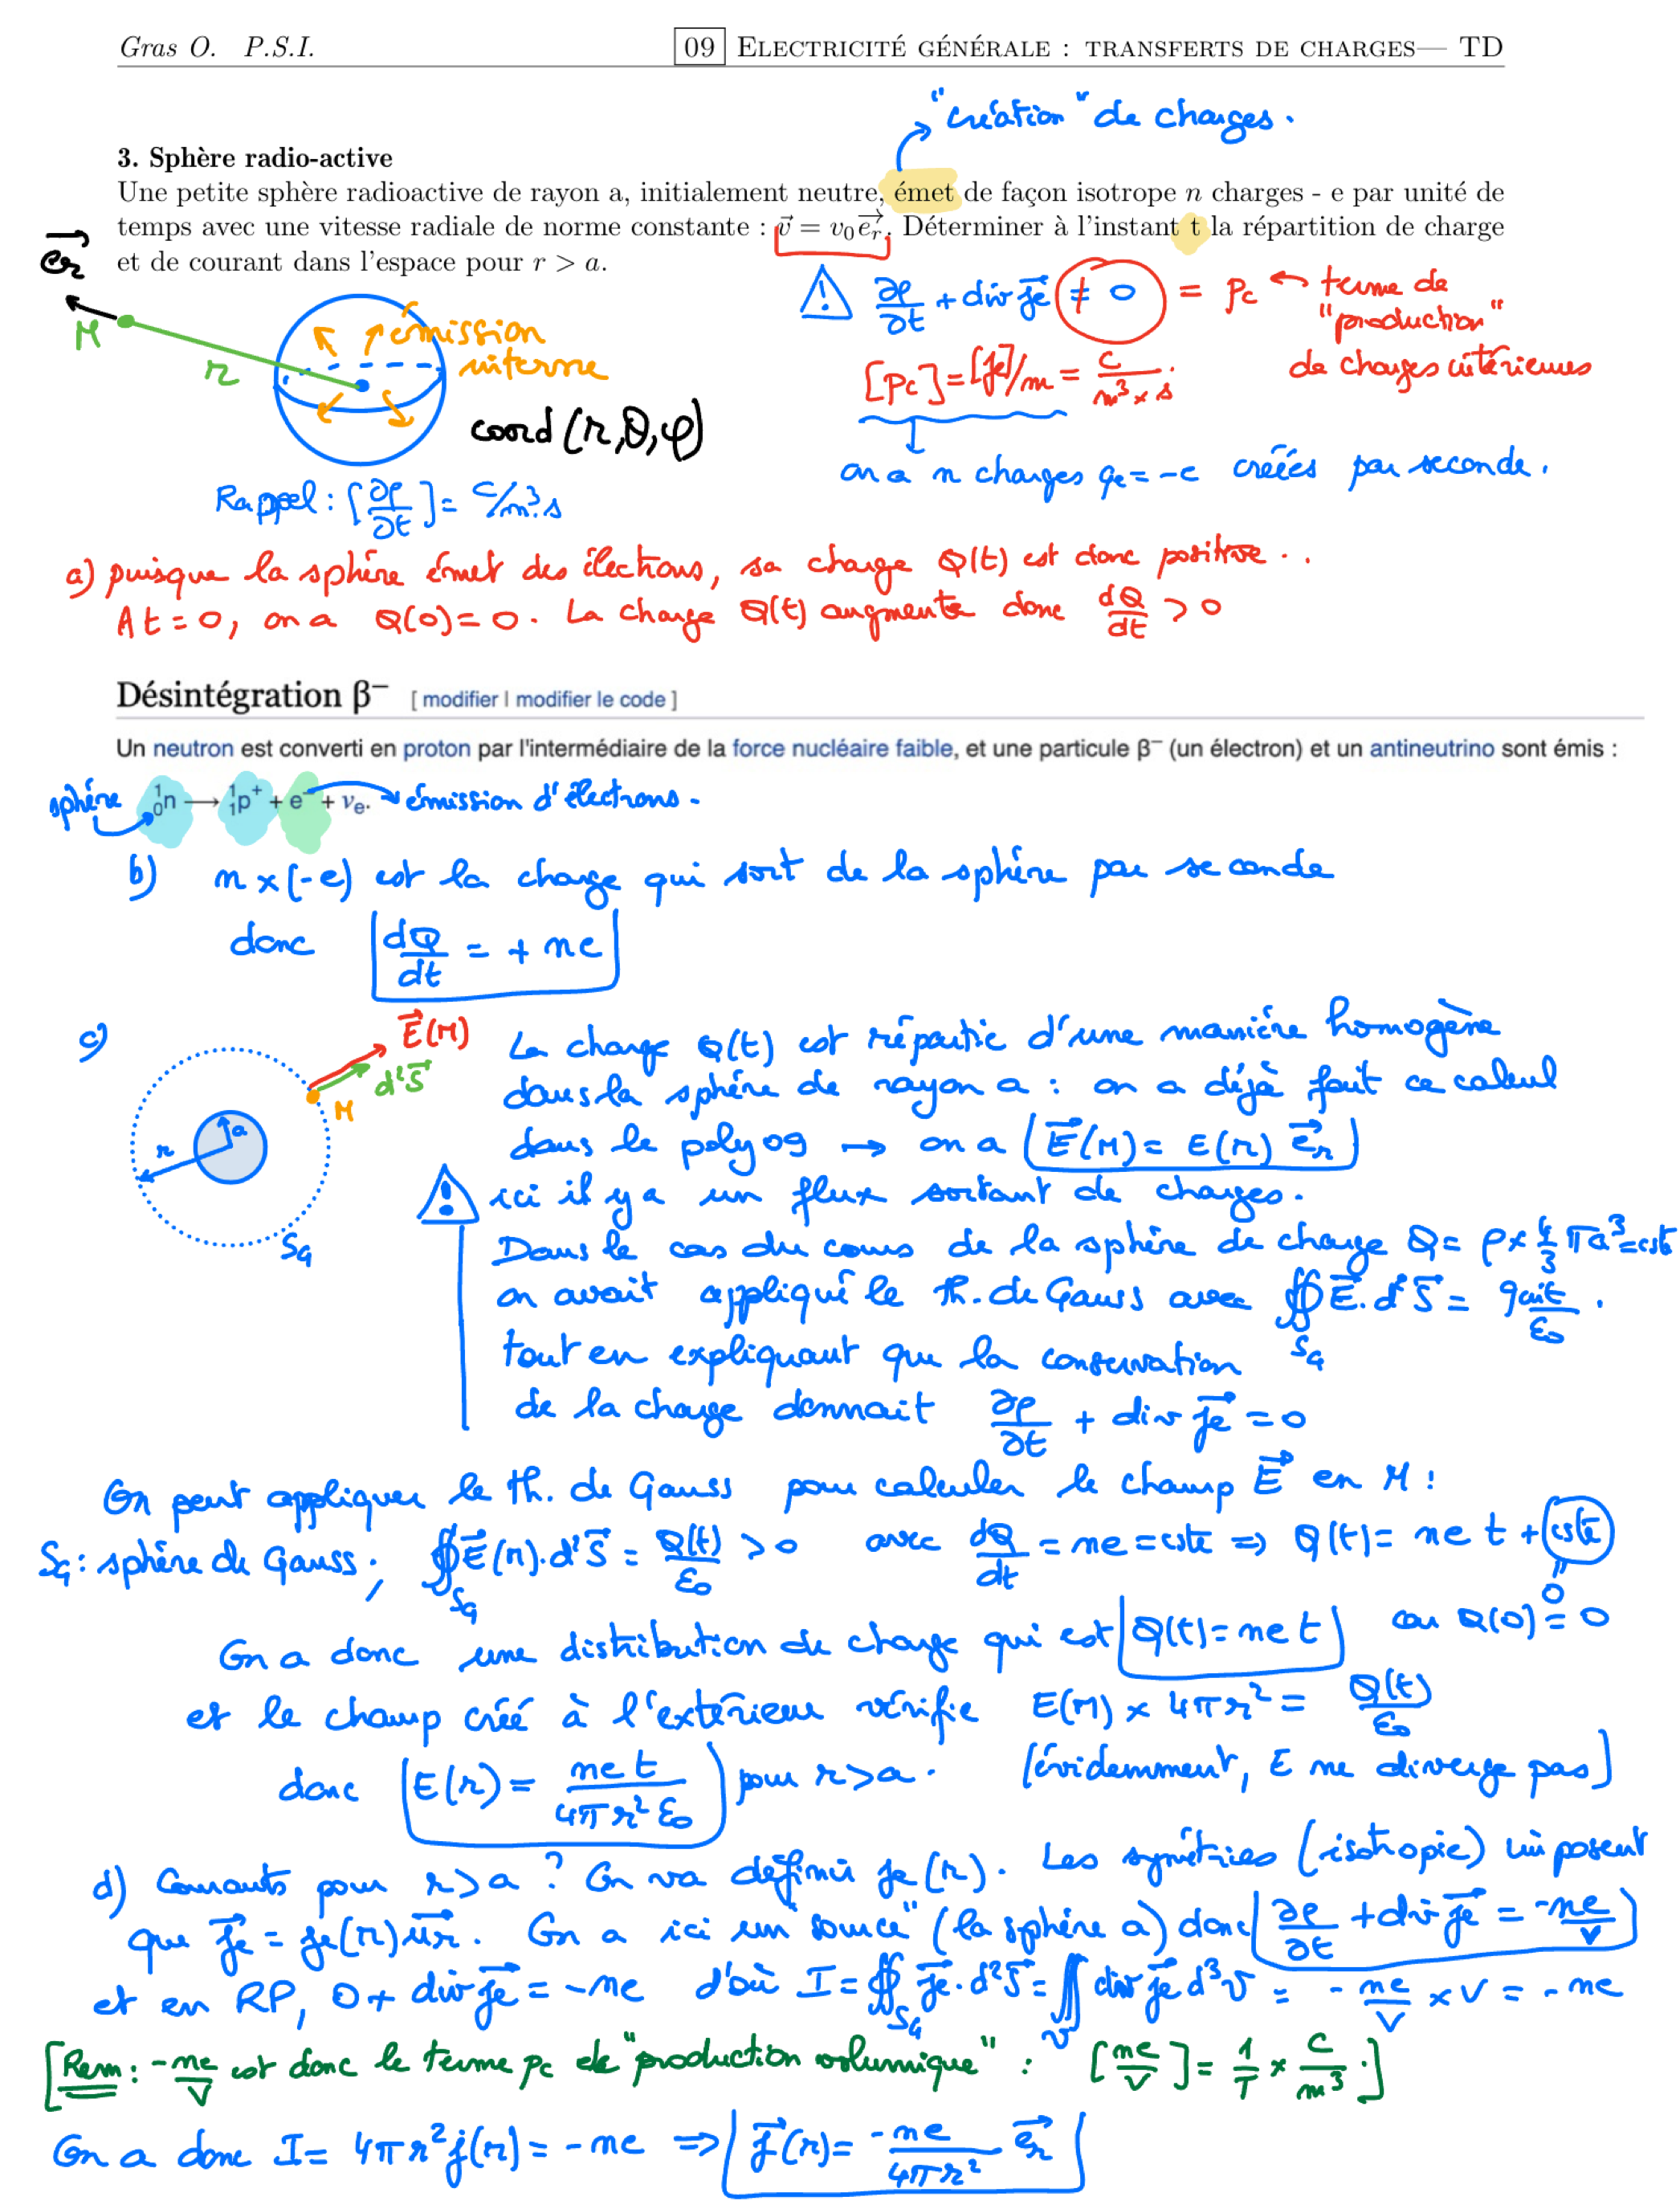 Gras O. P.S.I.
09 ELECTRICITÉ GÉNÉRALE : TRANSFERTS DE CHARGES— TD
"création" de charges.
3. Sphère radio-active
Une petite sphère radioactive de rayon a, initialement neutre, émet de façon isotrope n charges - e par unité de
temps avec une vitesse radiale de norme constante : v⃗ = v₀e⃗ᵣ. Déterminer à l'instant t la répartition de charge
et de courant dans l'espace pour r > a.
e⃗r
M
r
émission
interne
coord (r,θ,φ)
! ∂ρ/∂t + div j⃗e ≠ 0 = pc ← terme de
"production"
de charges intérieures
[pc] = [je]/m = C/m³×s
on a n charges qe = -e créées par seconde.
Rappel : [∂ρ/∂t] = C/m³.s
a) puisque la sphère émet des électrons, sa charge Q(t) est donc positive ..
A t = 0, on a Q(0) = 0. La charge Q(t) augmente donc dQ/dt > 0
Désintégration β⁻ [ modifier | modifier le code ]
Un neutron est converti en proton par l'intermédiaire de la force nucléaire faible, et une particule β⁻ (un électron) et un antineutrino sont émis :
sphère ¹₀n ⟶ ¹₁p⁺ + e⁻ + νe. émission d'électrons.
b) n × (-e) est la charge qui sort de la sphère par seconde
donc dQ/dt = + ne
c)
E⃗(M)
d²S⃗
M
a
r
SG
La charge Q(t) est répartie d'une manière homogène
dans la sphère de rayon a : on a déjà fait ce calcul
dans le poly 09 → on a E⃗(M) = E(r) e⃗r
! ici il y a un flux sortant de charges.
Dans le cas du cours de la sphère de charge Q = ρ × 4/3 π a³ = cste
on avait appliqué le th. de Gauss avec ∯SG E⃗.d²S⃗ = qint/ε₀ .
tout en expliquant que la conservation
de la charge donnait ∂ρ/∂t + div j⃗e = 0
On peut appliquer le th. de Gauss pour calculer le champ E⃗ en M :
SG : sphère de Gauss ; ∯SG E⃗(r).d²S⃗ = Q(t)/ε₀ > 0 avec dQ/dt = ne = cste ⇒ Q(t) = ne t + cste
= 0
On a donc une distribution de charge qui est Q(t) = ne t car Q(0) = 0
et le champ créé à l'extérieur vérifie E(M) × 4πr² = Q(t)/ε₀
donc E(r) = ne t/4πr²ε₀ pour r>a. [évidemment, E ne diverge pas]
d) Courants pour r>a ? On va définir je(r). Les symétries (isotropie) imposent
que j⃗e = je(r)u⃗r. On a ici un "source" (la sphère a) donc ∂ρ/∂t + div j⃗e = -ne/V
et en RP, 0 + div j⃗e = -ne d'où I = ∯SG j⃗e.d²S⃗ = ∭V div j⃗e d³V = - ne/V × V = - ne
[Rem : -ne/V est donc le terme pc de "production volumique" : [ne/V] = 1/T × C/m³ .]
On a donc I = 4πr²j(r) = -ne ⇒ j⃗(r) = -ne/4πr² e⃗r